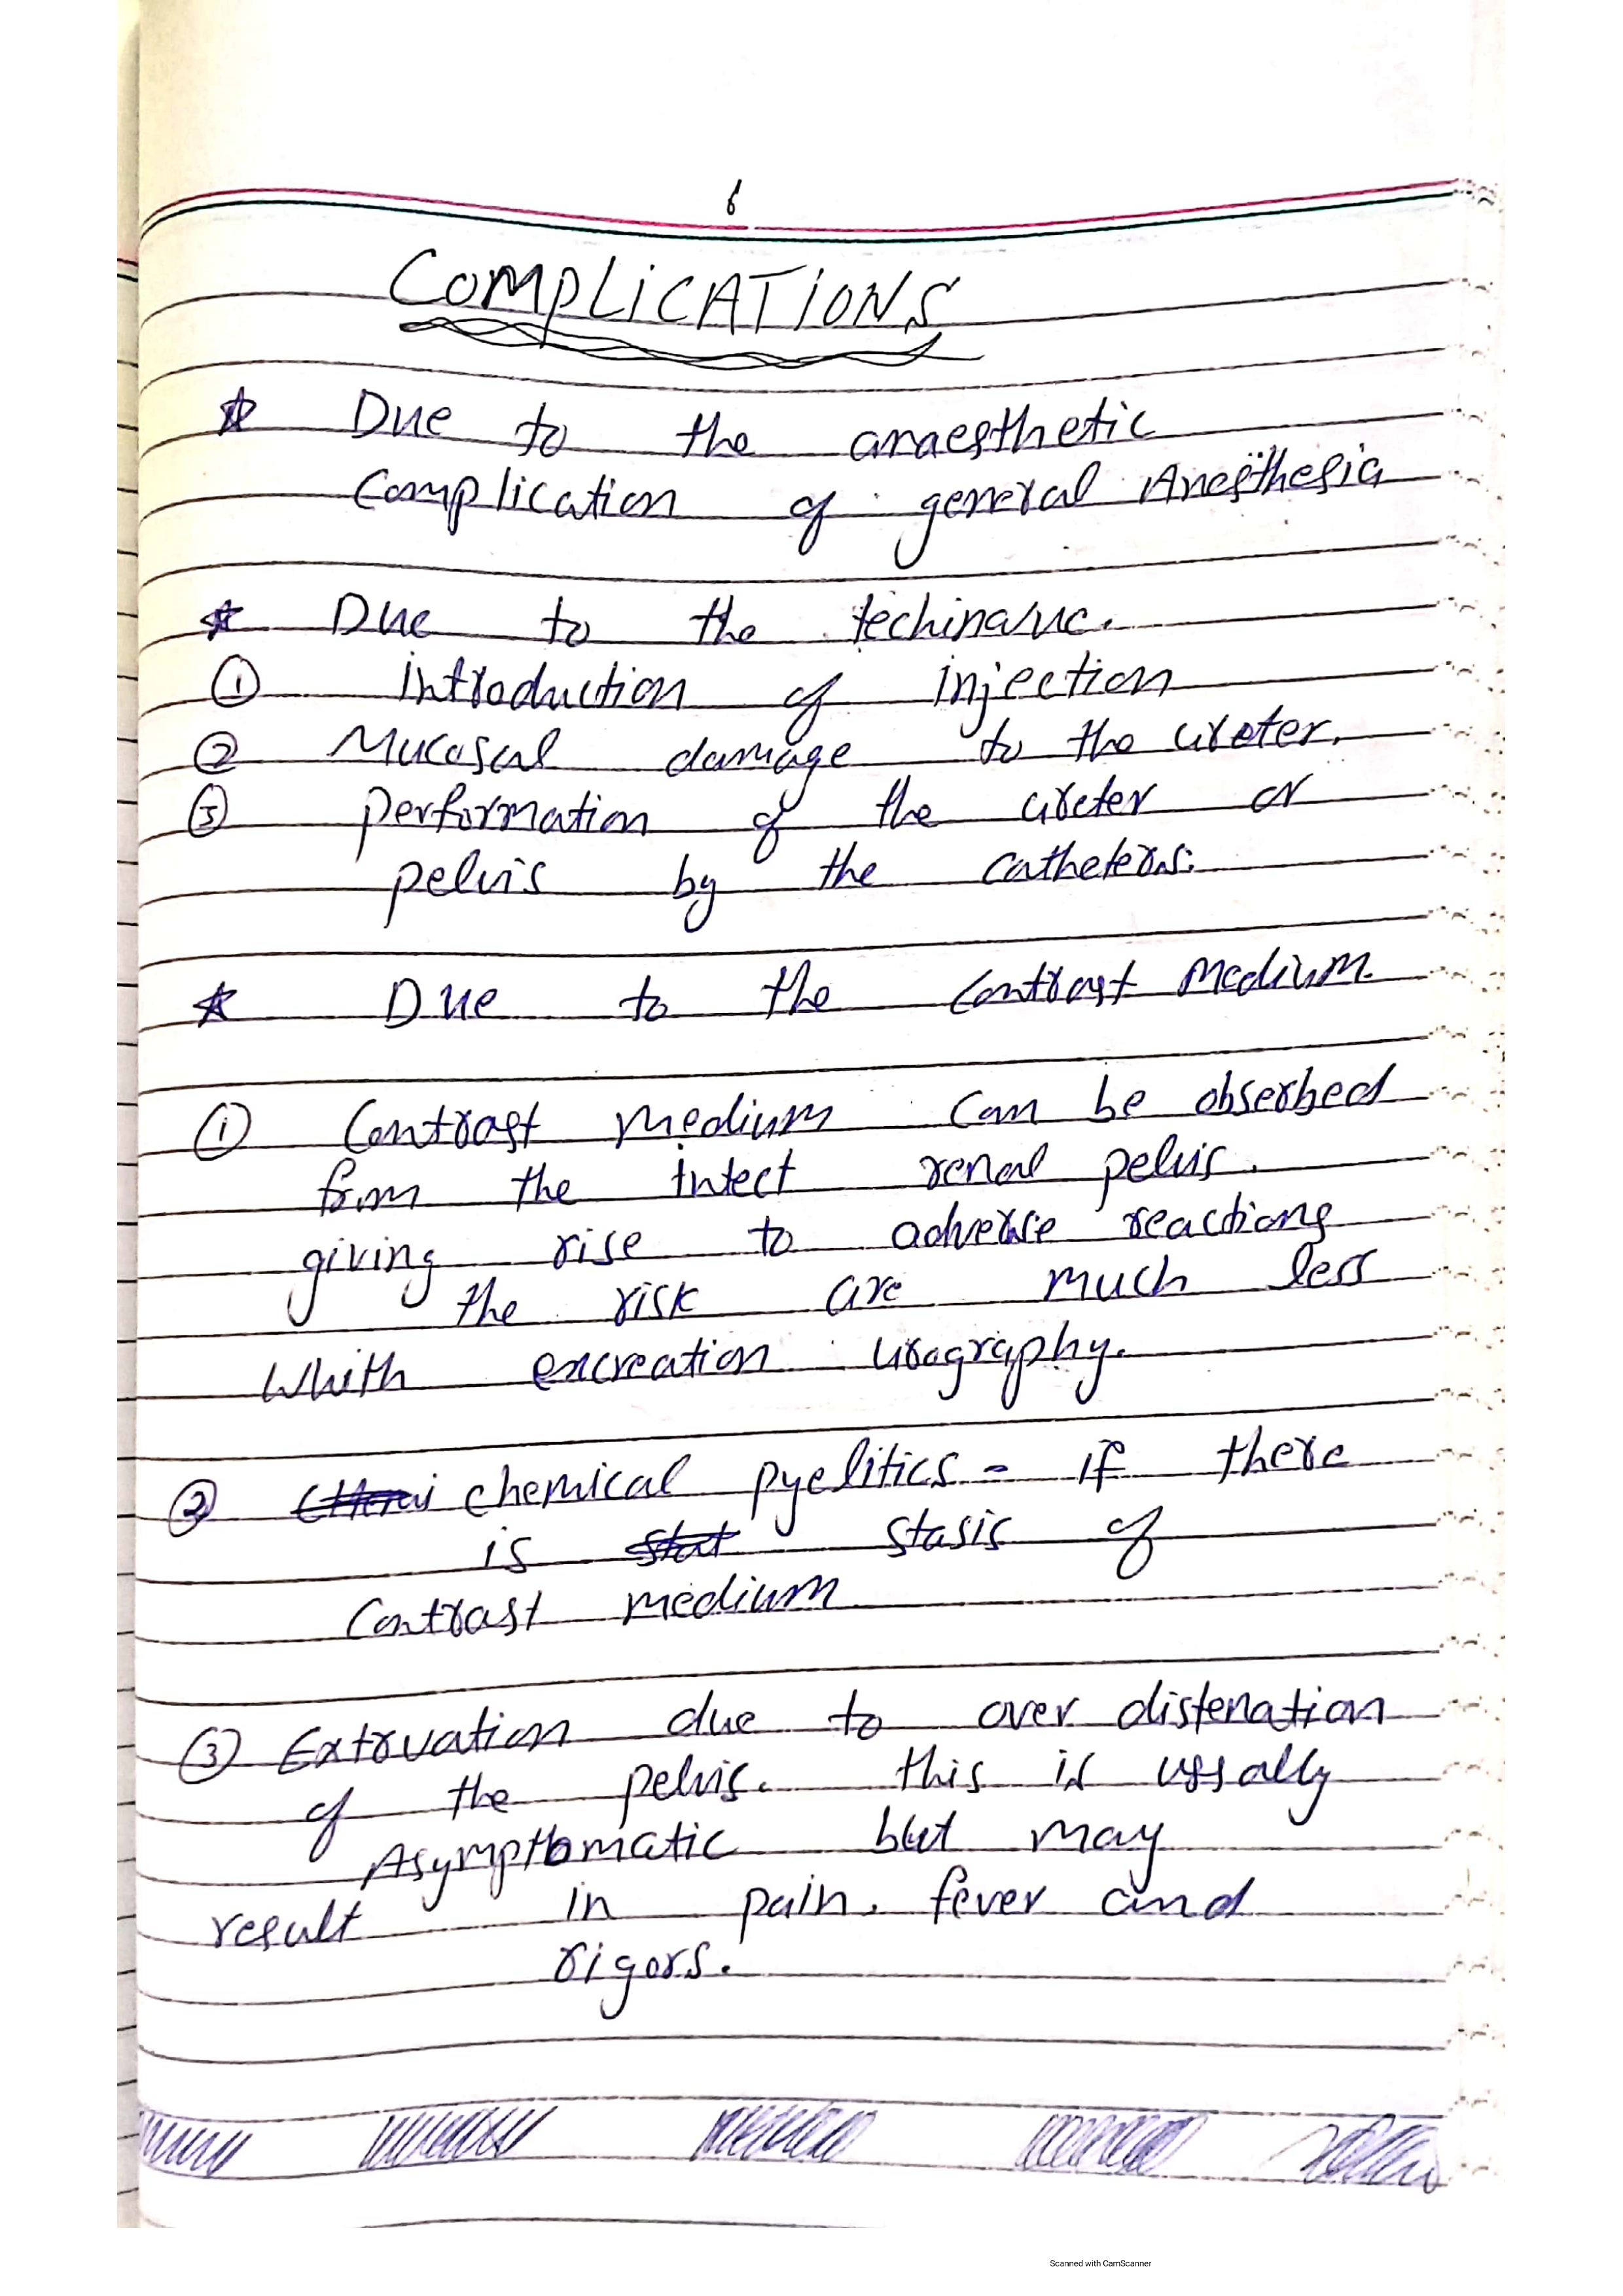 6
COMPLiCATiONS
☆ Due to the anaesthetic
Complication of general Anesthesia
☆ Due to the
① introduction of injection
② Mucosal damage to the ureter.
③ performation of the ureter or
pelvis by the catheters.
☆ Due to the contrast medium.
① Contrast medium can be obserbed
from the intect renal pelvis.
giving rise to adverse reactions
the risk are much less
Whith excreation urography.
② chemical pyelitics - if there
is stasis of
Contrast medium
③ Extruvation due to over distenation
of the pelvis. this is ussally
Asymptomatic but may
result in pain. fever and
rigors.
Scanned with CamScanner